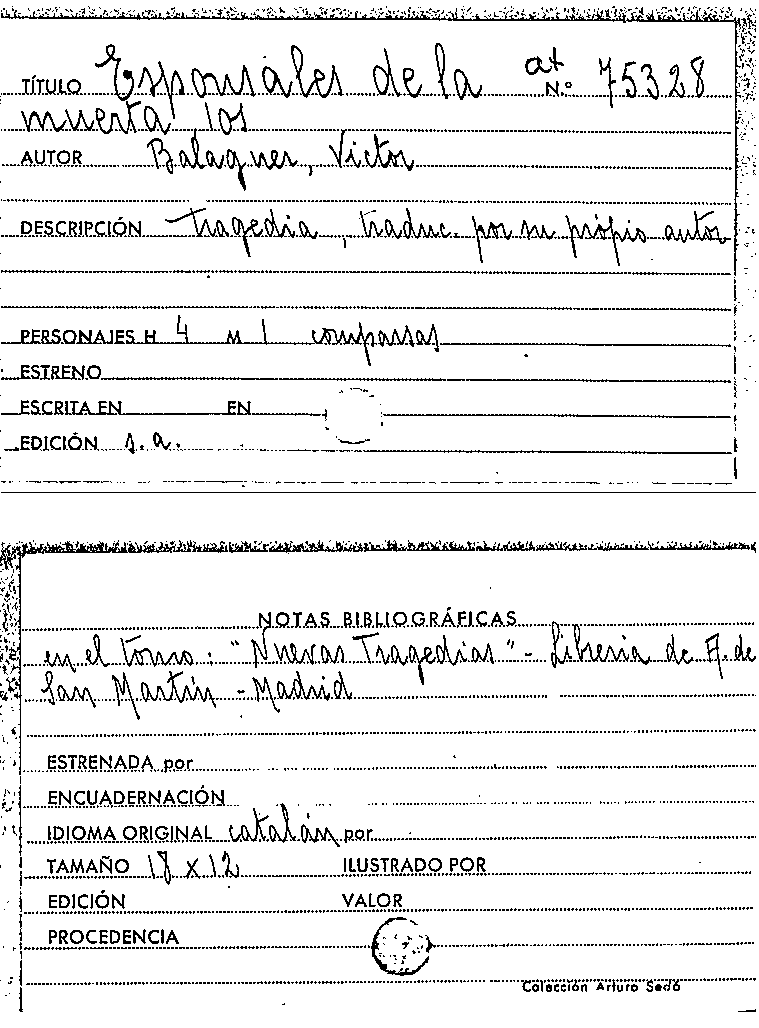 TÍTULO Esponsales de la at N.º 75328
muerta los
AUTOR Balaguer, Victor
DESCRIPCIÓN tragedia, traduc. por su própio autor
PERSONAJES H 4 M 1 comparsas
ESTRENO
ESCRITA EN EN
EDICIÓN s.a.
NOTAS BIBLIOGRÁFICAS
en el tomo: "Nuevas Tragedias" - Libreria de A. de
San Martín - Madrid
ESTRENADA por
ENCUADERNACIÓN
IDIOMA ORIGINAL catalán por
TAMAÑO 18 x 12 ILUSTRADO POR
EDICIÓN VALOR
PROCEDENCIA
Colección Arturo Sedó